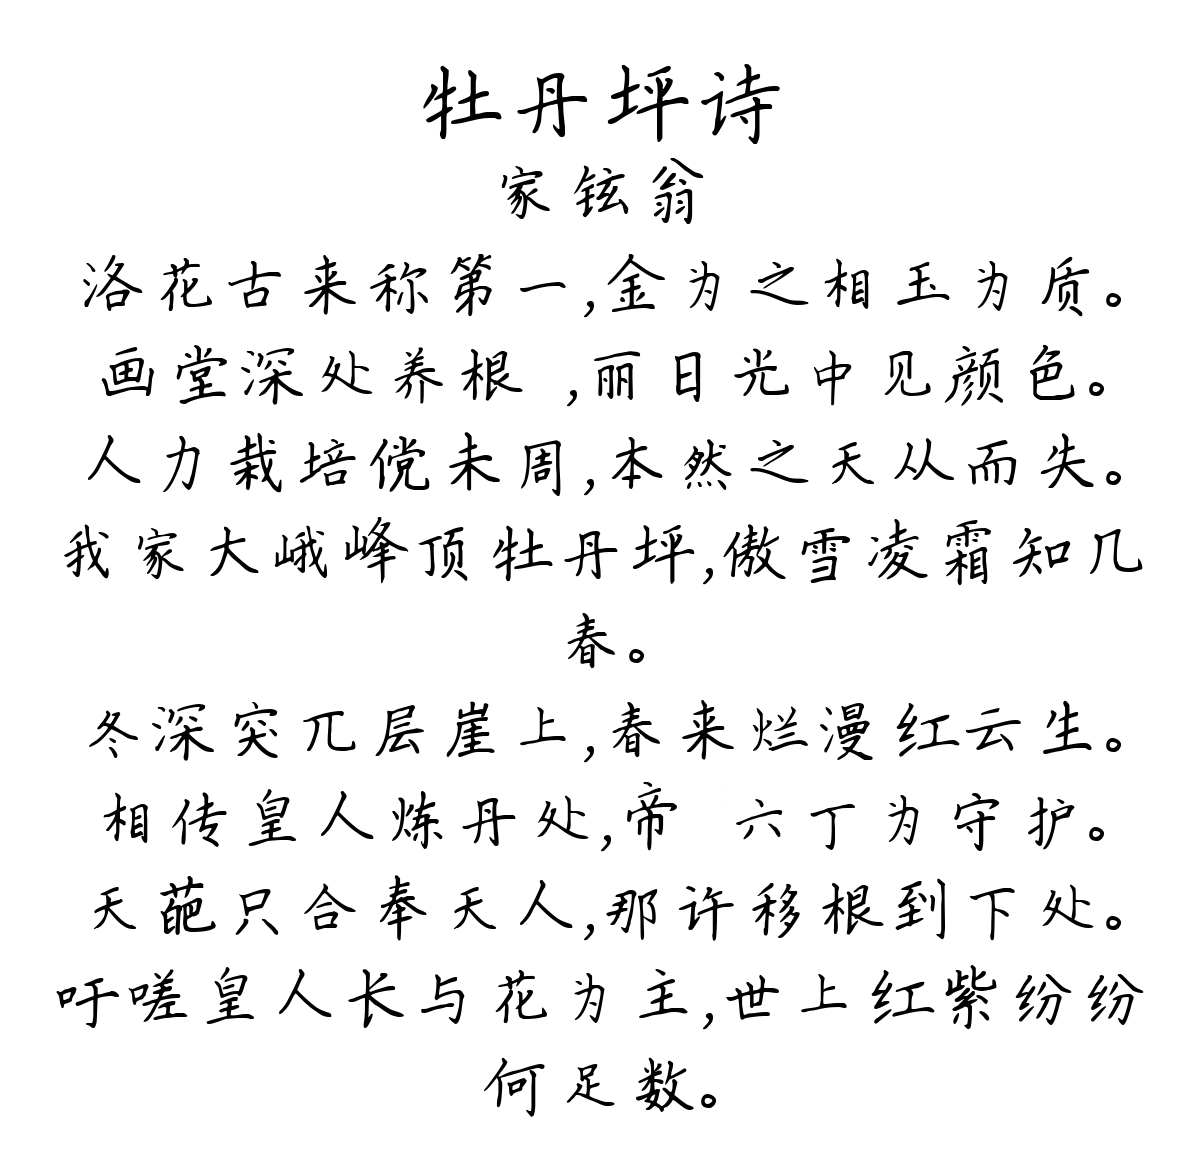 牡丹坪诗
家铉翁
洛花古来称第一,金为之相玉为质。
画堂深处养根 ,丽日光中见颜色。
人力栽培傥未周,本然之天从而失。
我家大峨峰顶牡丹坪,傲雪凌霜知几
春。
冬深突兀层崖上,春来烂漫红云生。
相传皇人炼丹处,帝 六丁为守护。
天葩只合奉天人,那许移根到下处。
吁嗟皇人长与花为主,世上红紫纷纷
何足数。